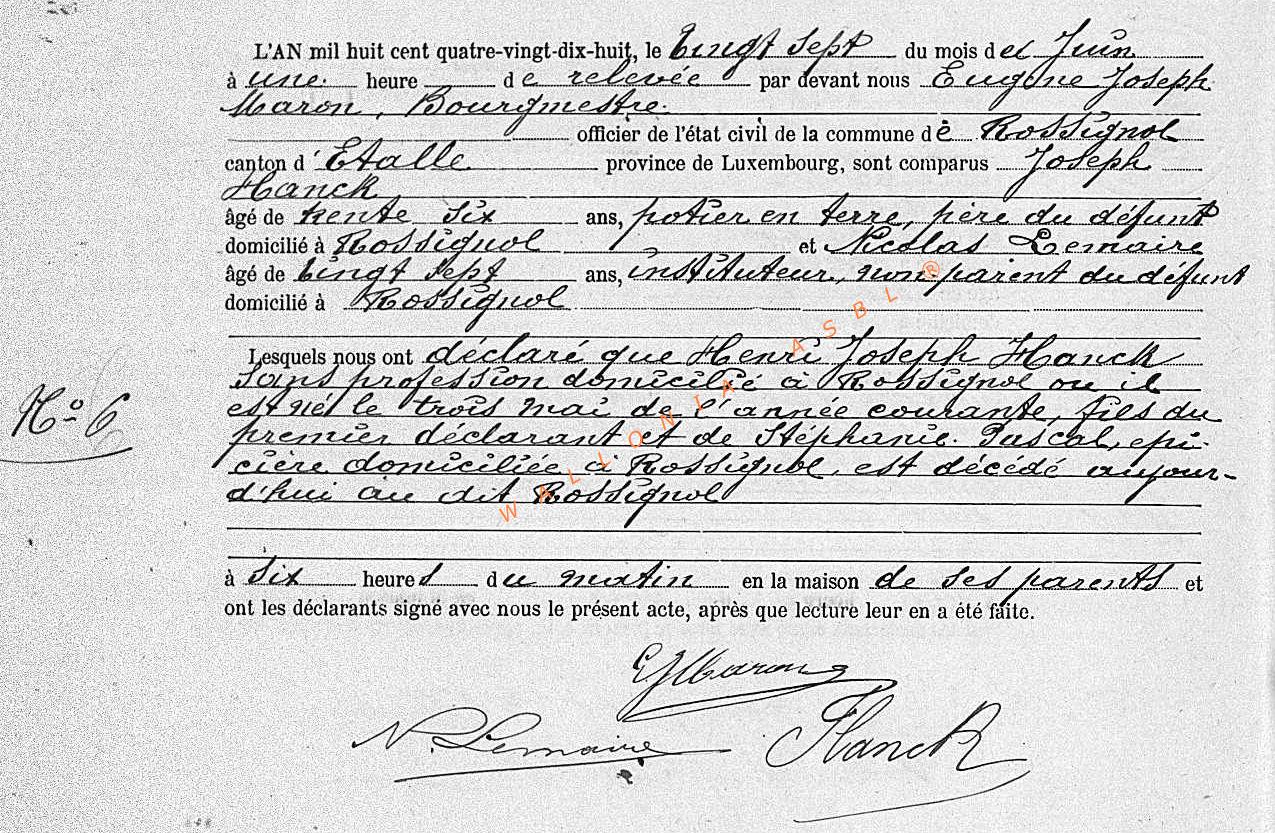 L'AN mil huit cent quatre-vingt-dix-huit, le vingt sept du mois de Juin
à une heure de relevée par devant nous Eugène Joseph
Maron, Bourgmestre
officier de l'état civil de la commune de Rossignol
canton d'Etalle province de Luxembourg, sont comparus Joseph
Hanck
âgé de trente six ans, potier en terre, père du défunt
domicilié à Rossignol et Nicolas Lemaire
âgé de vingt sept ans, instituteur, non parent du défunt
domicilié à Rossignol
Lesquels nous ont déclaré que Henri Joseph Hanck
sans profession domicilié à Rossignol ou il
est né le trois mai de l'année courante, fils du
premier déclarant et de Stéphanie Pascal, épi-
cière domiciliée à Rossignol, est décédé aujour-
d'hui au dit Rossignol
N° 6
à six heures du matin en la maison de ses parents et
ont les déclarants signé avec nous le présent acte, après que lecture leur en a été faite.
EJMaron
N. Lemaire Hanck
WALLONIA ASBL ®